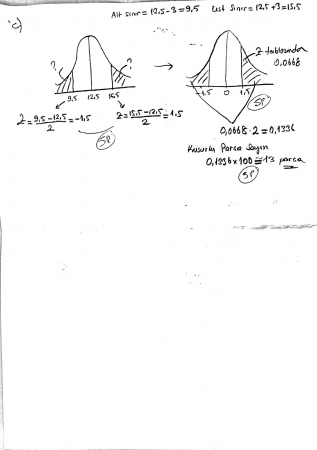 Alt sınır = 12,5-3=9,5 Üst Sınır = 12,5+3=15,5
c)
? ?
Z tablosundan
0,0668
9,5 12,5 15,5
-1,5 0 1,5
Z = 9,5-12,5 / 2 = -1,5 Z = 15,5-12,5 / 2 = 1,5
5P
5P
0,0668 . 2 = 0,1336
Kusurlu Parça Sayısı
0,1336 x 100 ≅ 13 parça
5P